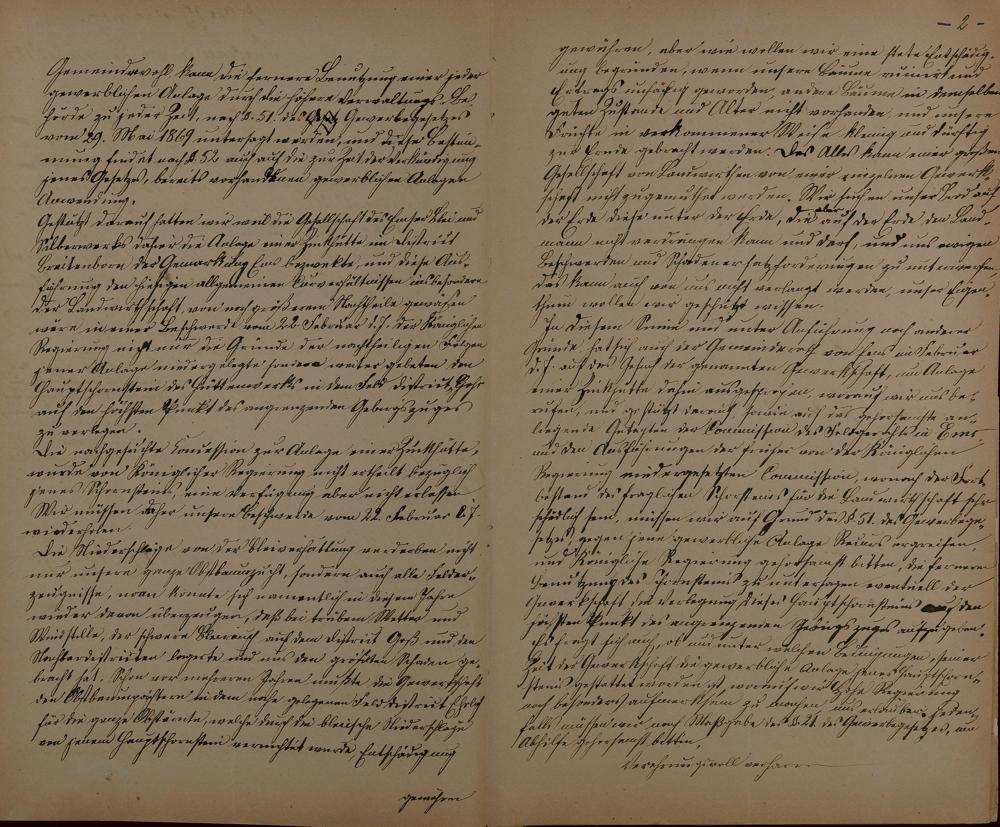 Gemeindewohl, kann die fernere Benutzung einer jeder
gewerblichen Anlage durch die höhere Verwaltungs-Be-
hörde zu jeder Zeit, nach §. 51. des Gewerbegesetzes
vom 29. Mai 1869 untersagt werden, und diese Bestim-
mung findet nach §. 52 auch auf die zur Zeit der Verkündigung
jenes Gesetzes, bereits vorhandenen gewerblichen Anlagen
Anwendung.
Gestützt darauf hatten wir weil die Gesellschaft des Emser Blei und
Silberwerks daher die Anlage einer Zinkhütte im Distrikt
Breitenborn der Gemarkung Ems bezweckte, und diese Aus-
führung den hiesigen allgemeinen Curverhältnissen insbesondere
der Landwirthschaft, von noch größeren Nachtheile gewesen
wäre in einer Beschwerde vom 22. Februar d. J. der Königlichen
Regierung nicht nur die Gründe der nachtheiligen Folgen
jener Anlage niedergelegt sondern weiter gebeten den
Hauptschornstein des Hüttenwerks in dem Feld Distrikt
auf den höchsten Punkt des angrenzenden Gebirgszuges
zu verlegen.
Die nachgesuchte Concession zur Anlage einer Zinkhütte,
wurde von Königlicher Regierung nicht ertheilt bezüglich
jenes Schornsteins, eine Verfügung aber nicht erlassen
Wir müssen daher unsere Beschwerde vom 22. Februar d. J.
wiederholen.
Die Niederschläge von der Bleiverhüttung verderben nicht
nur unsere ganze Obstbaumzucht, sondern auch alle Felder-
zeugnisse, man konnte sich namentlich in diesem Jahre
wieder davon überzeugen, daß bei trübem Wetter und
Windstille, der schwere Bleirauch auf dem Distrikt und den
Nachbardistrikten lagerte und uns den größten Schaden ge-
bracht hat. Schon vor mehreren Jahren mußte die Gewerkschaft
den Obstbaumpächtern in dem nahe gelegenen Feld Distrikt
für die ganze Obsternte, welche durch die bleiische Niederschläge
von jenem Hauptschornstein vernichtet wurde, Entschädigung
gewähren
- 2 -
gewähren, aber wie wollen wir eine stete Entschädig-
ung begründen, wenn unsere Bäume ruinirt und
Ertrags unfähig geworden, andere Bäume in demselben
guten Zustande und Alter nicht vorhanden, und unsere
Früchte in verkommener Weise klemig und dürftig
zur Ernde gebracht werden. Das Alles kann einer großen
Gesellschaft von Landwirthen von einer einzelnen Gewerk-
schaft nicht zugemuthet werden. Wir suchen unser Brod auf
der Erde diese unter der Erde, die aber auf der Erde den Land-
mann nicht verdrängen kann und darf, und uns ewigen
Beschwerden und Schadenersatzforderungen zu unterwerfen
das kann auch von uns nicht verlangt werden, unser Eigen-
thum wollen wir geschützt wissen.
In diesem Sinne und unter Anführung noch anderer
Gründe hat sich auch der Gemeinderath von Ems im Februar
d. J. auf das Gesuch der genannten Gewerkschaft, um Anlage
einer Zinkhütte dahin ausgesprochen, worauf wir uns be-
rufen, und gestützt darauf, sowie auf das gehorsamste an-
liegende Gutachten der Commission des Feldgerichts in Ems
und den Ausführungen der früher von der Königlichen
Regierung niedergesetzten Commission, wonach der Fort-
bestand des fraglichen Schornsteins für die Landwirthschaft sehr
schädlich sein, müssen wir auf Grund des §. 51. des Gewerbege-
setzes, gegen jene gewerbliche Anlage Recurs ergreifen,
und Königliche Regierung gehorsamst bitten, die fernere
Benutzung des Schornsteins zu untersagen eventuell der
Gewerkschaft die Verlegung dieses Hauptschornsteins auf den
höchsten Punkt des angrenzenden Gebirgszuges aufzugeben.
Es fragt sich auch, ob und unter welchen Bedingungen, seiner
Zeit der Gewerkschaft die gewerbliche Anlage jenes Hauptschorn-
steins gestattet worden ist, worauf wir Hohe Regierung
noch besonders aufmerksam zu machen uns erlauben. Jeden-
falls müssen wir nach Maßgabe des §. 21. des Gewerbegesetzes, um
Abhilfe gehorsamst bitten.
Verehrungsvoll verharren